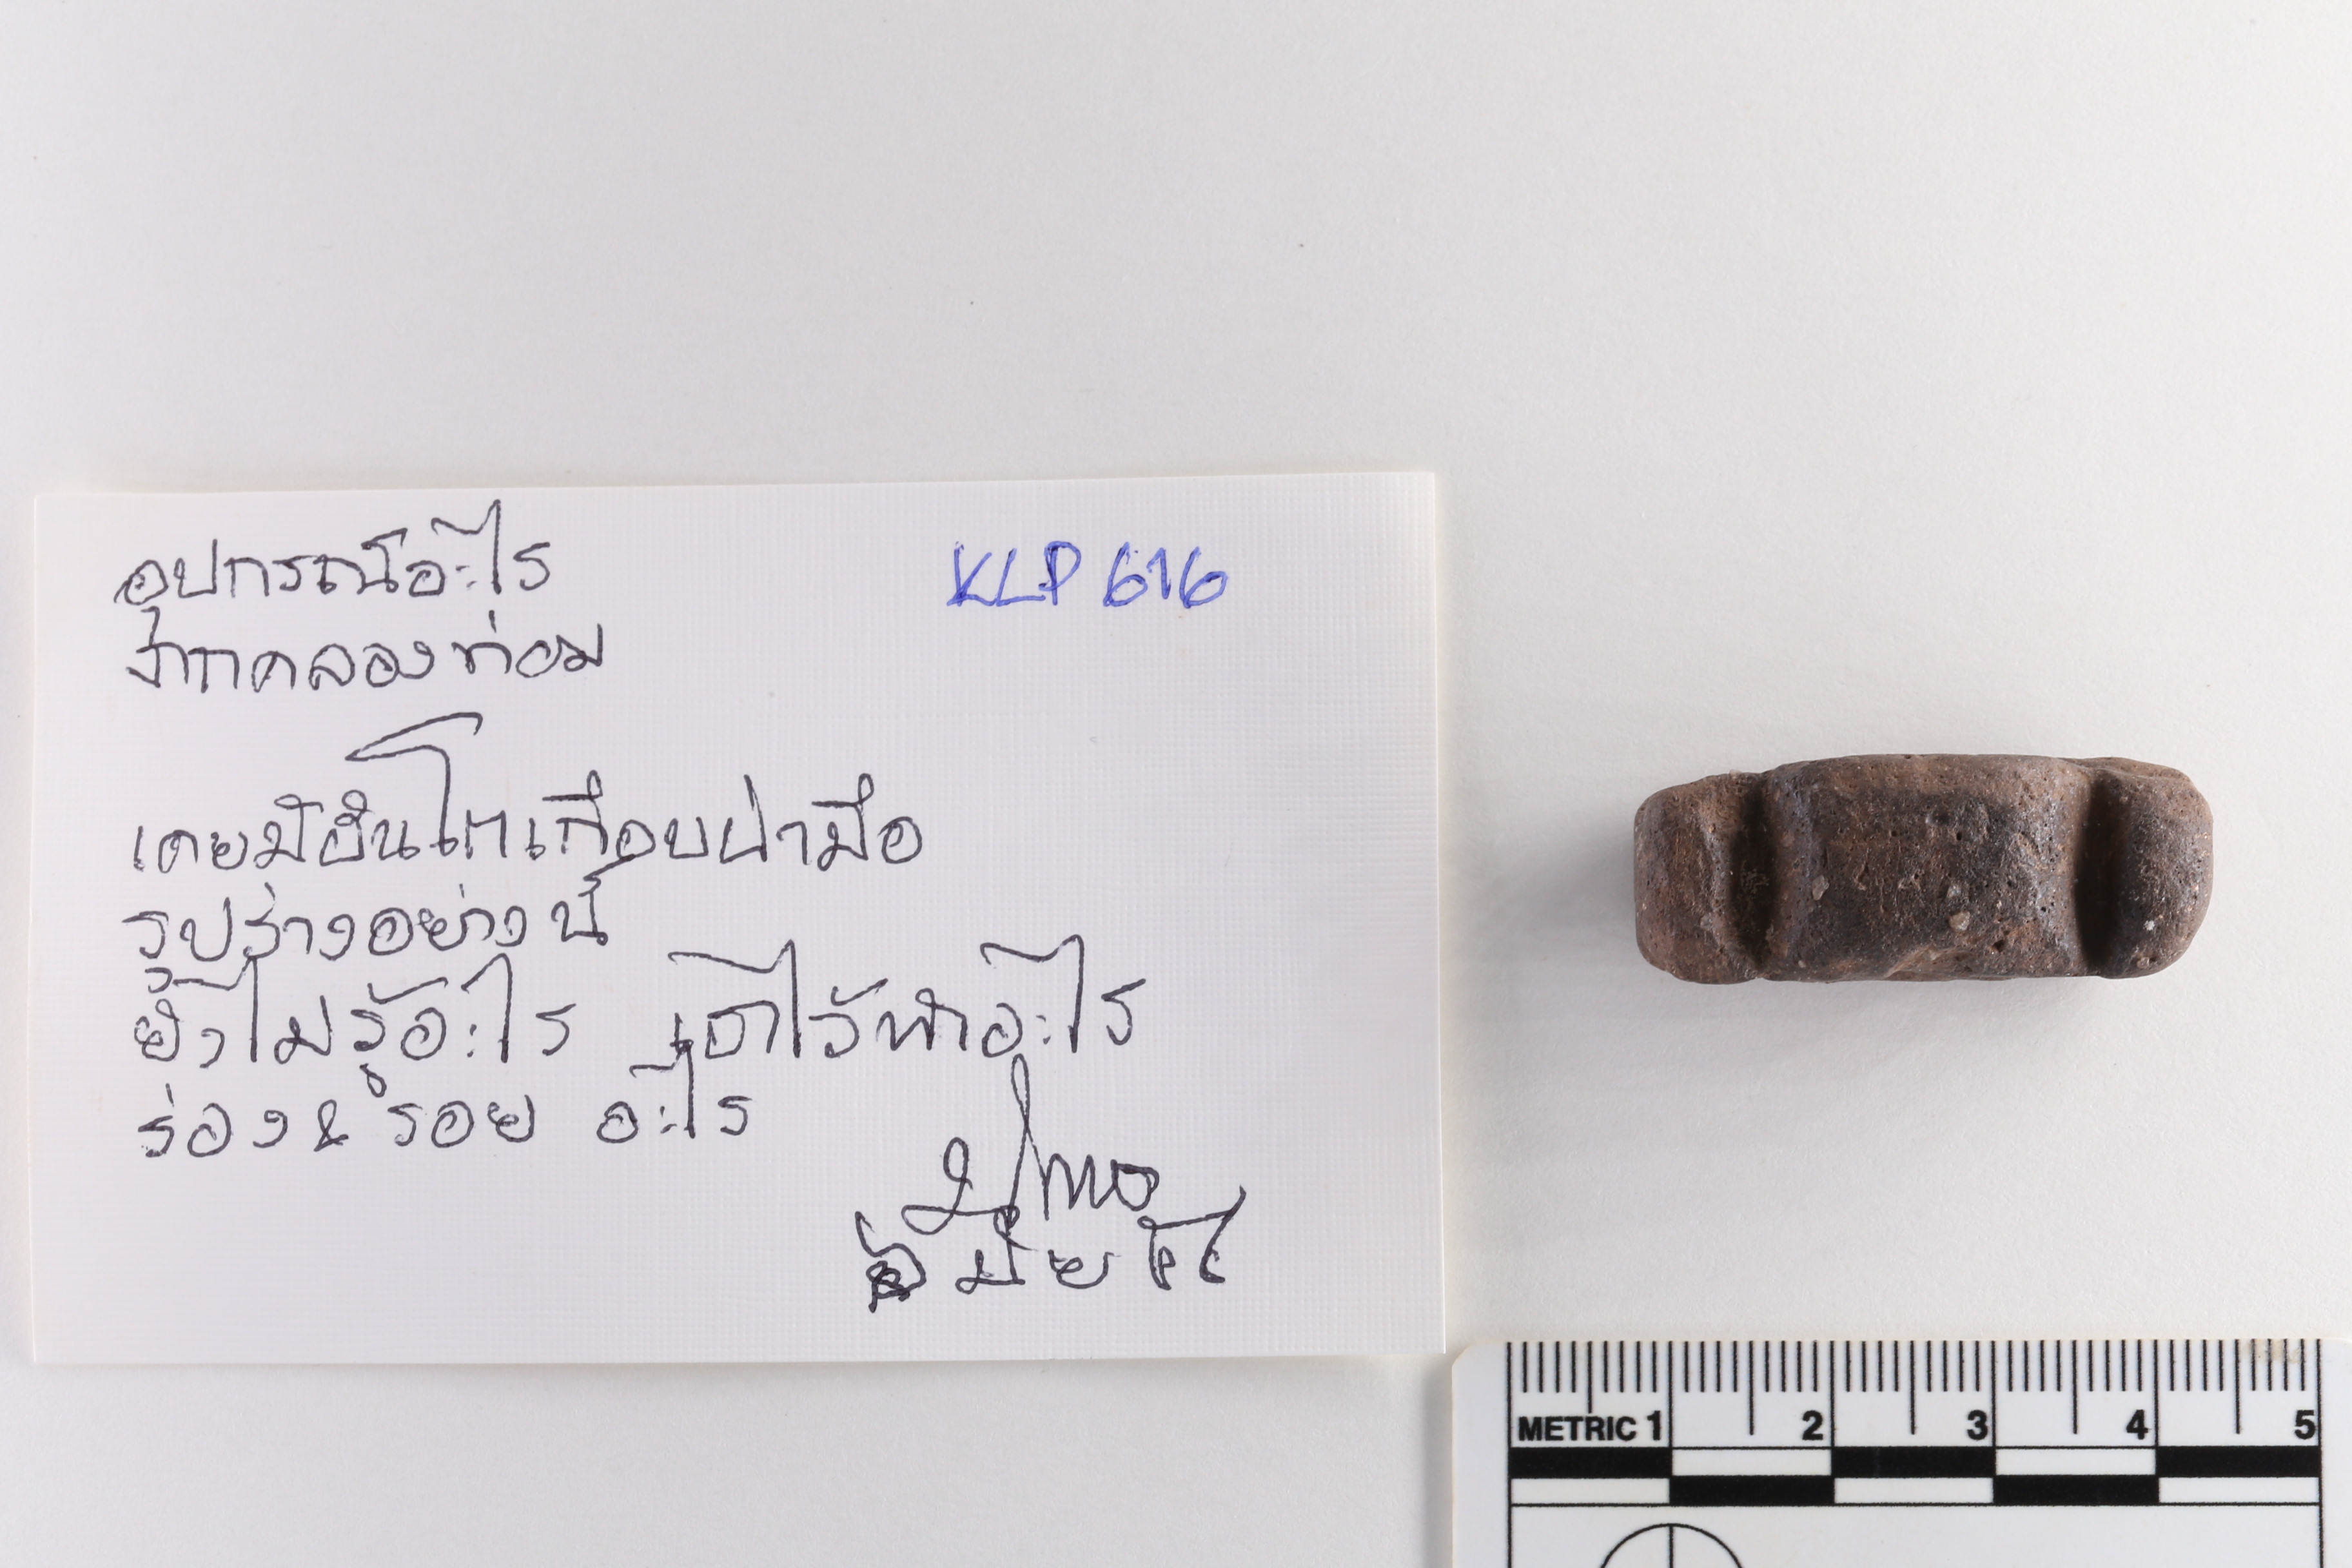 อุปกรณ์อะไร
KLP 616
จากคลองท่อม
เคยมีชิ้นโตเกือบฝ่ามือ
รูปร่างอย่างนี้
ยังไม่รู้อะไร เอาไว้ทำอะไร
ร่อง & รอย อะไร
METRIC 1 2 3 4 5